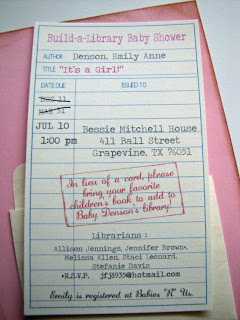 Build-a-Library Baby Shower
AUTHOR Denson, Emily Anne
TITLE "It's a Girl!"
DATE DUE ISSUED TO
DEC 11
MAR 31
JUL 10 Bessie Mitchell House
1:00 pm 411 Ball Street
Grapevine, TX 76051
In lieu of a card, please
bring your favorite
children's book to add to
Baby Denson's library!
Librarians:
Allison Jennings, Jennifer Brown,
Melissa Allen, Staci Leonard,
Stefanie Davis
•R.S.V.P. jfj8935@hotmail.com
Emily is registered at Babies "R" Us.